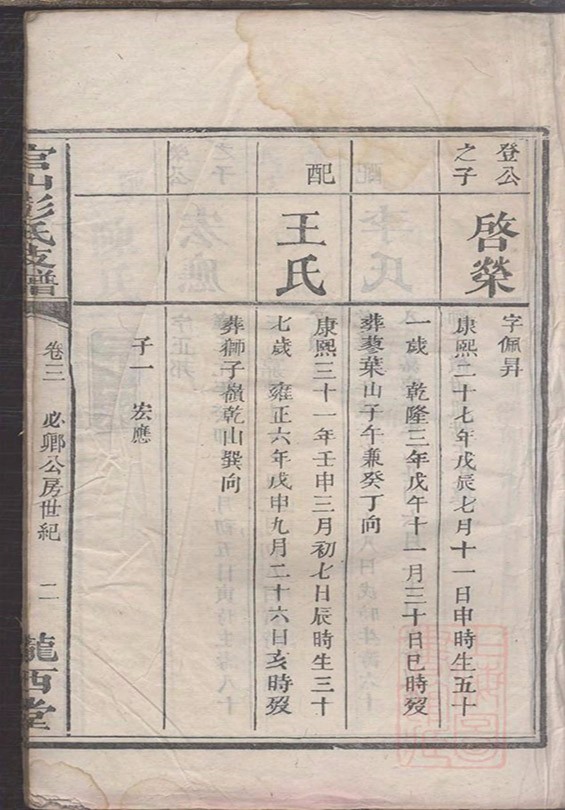 登公之子
啓榮
字佩昇
康熙二十七年戊辰七月十一日申時生五十
一歲 乾隆三年戊午十一月三十日巳時歿
葬蓼葉山子午兼癸丁向
配
王氏
康熙三十一年壬申三月初七日辰時生三十
七歲 雍正六年戊申九月二十六日亥時歿
葬獅子嶺乾山巽向
子一 宏應
官山彭氏支譜
卷三 必卿公房世紀 二
隴西堂